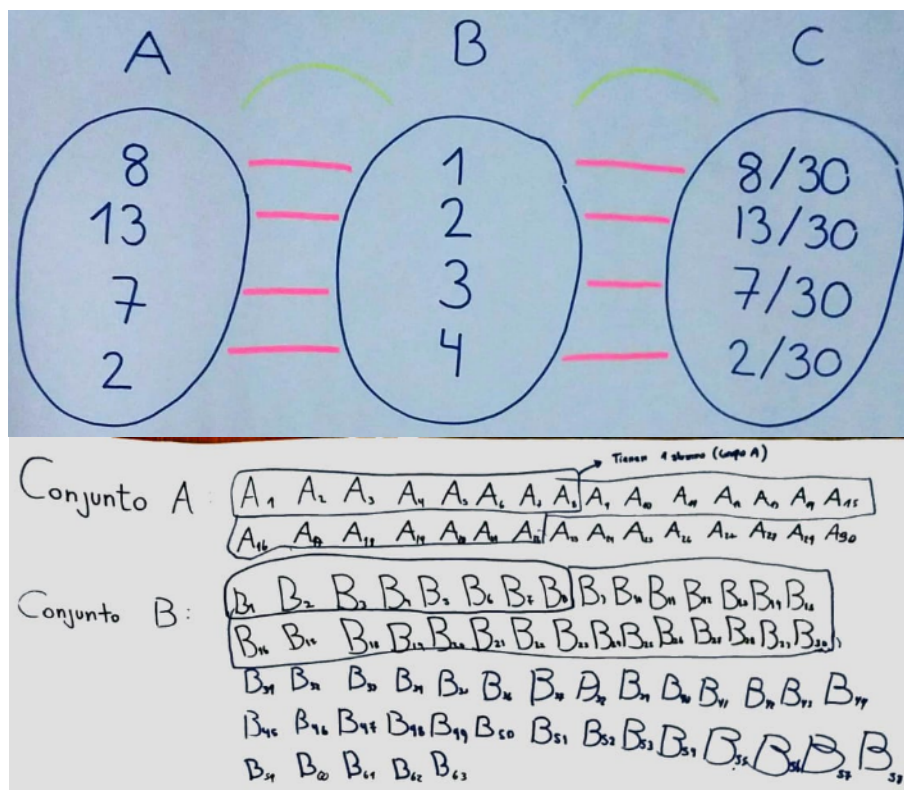 A B C
8 1 8/30
13 2 13/30
7 3 7/30
2 4 2/30
Tienen 1 (Grupo A)
Conjunto A: A₁ A₂ A₃ A₄ A₅ A₆ A₇ A₈ A₉ A₁₀ A₁₁ A₁₂ A₁₃ A₁₄ A₁₅
A₁₆ A₁₇ A₁₈ A₁₉ A₂₀ A₂₁ A₂₂ A₂₃ A₂₄ A₂₅ A₂₆ A₂₇ A₂₈ A₂₉ A₃₀
Conjunto B: B₁ B₂ B₃ B₄ B₅ B₆ B₇ B₈ B₉ B₁₀ B₁₁ B₁₂ B₁₃ B₁₄ B₁₅
B₁₆ B₁₇ B₁₈ B₁₉ B₂₀ B₂₁ B₂₂ B₂₃ B₂₄ B₂₅ B₂₆ B₂₇ B₂₈ B₂₉ B₃₀
B₃₁ B₃₂ B₃₃ B₃₄ B₃₅ B₃₆ B₃₇ B₃₈ B₃₉ B₄₀ B₄₁ B₄₂ B₄₃ B₄₄
B₄₅ B₄₆ B₄₇ B₄₈ B₄₉ B₅₀ B₅₁ B₅₂ B₅₃ B₅₄ B₅₅ B₅₆ B₅₇ B₅₈
B₅₉ B₆₀ B₆₁ B₆₂ B₆₃